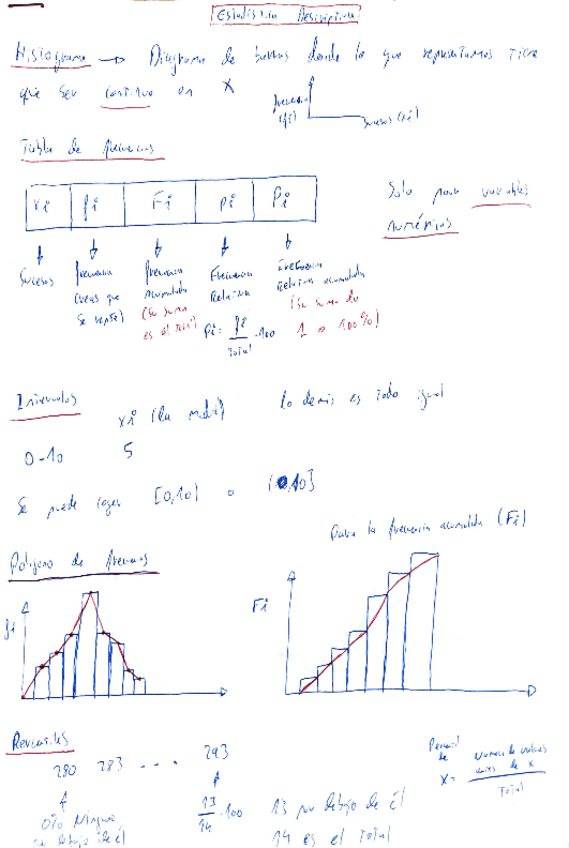 Estadística Descriptiva
Histograma → Diagrama de barras donde lo que representamos tiene
que ser continuo en X
frecuencia
(fi)
sucesos (xi)
Tabla de frecuencias
xi fi Fi pi Pi
Solo para variables
numéricas
Sucesos
frecuencia
(veces que
se repite)
frecuencia
acumulada
(su suma
es el total)
Frecuencia
Relativa
pi = fi/Total · 100
Frecuencia
Relativa acumulada
(su suma da
1 o 100%)
Intervalos
xi (la media)
lo demás es todo igual
0-10 5
Se puede coger [0,10) o (0,10]
Para la frecuencia acumulada (Fi)
Polígono de frecuencias
fi
Fi
Percentiles
280 283 ... 293
0% Ninguno
debajo de él
13/14 · 100
13 por debajo de él
14 es el total
Percentil
de
X =
Número de valores
antes de x
Total